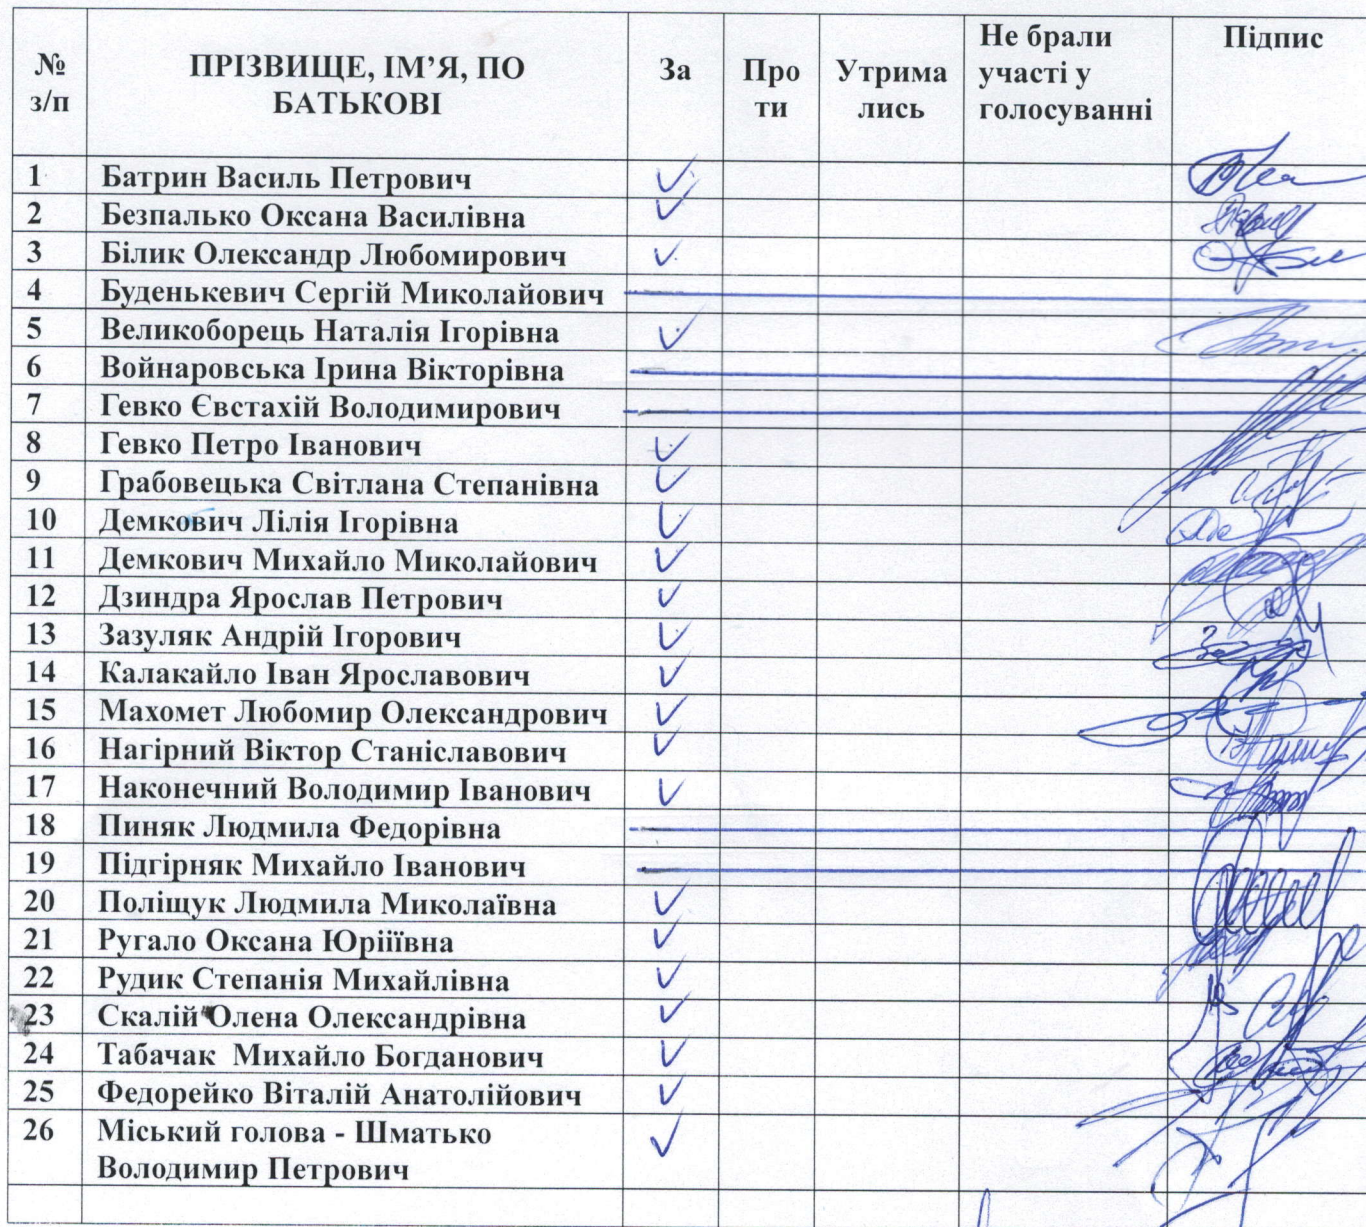 № з/п ПРІЗВИЩЕ, ІМ’Я, ПО БАТЬКОВІ За Про ти Утрима лись Не брали участі у голосуванні Підпис
1 Батрин Василь Петрович ✓
2 Безпалько Оксана Василівна ✓
3 Білик Олександр Любомирович ✓
4 Буденькевич Сергій Миколайович
5 Великоборець Наталія Ігорівна ✓
6 Войнаровська Ірина Вікторівна
7 Гевко Євстахій Володимирович
8 Гевко Петро Іванович ✓
9 Грабовецька Світлана Степанівна ✓
10 Демкович Лілія Ігорівна ✓
11 Демкович Михайло Миколайович ✓
12 Дзиндра Ярослав Петрович ✓
13 Зазуляк Андрій Ігорович ✓
14 Калакайло Іван Ярославович ✓
15 Махомет Любомир Олександрович ✓
16 Нагірний Віктор Станіславович ✓
17 Наконечний Володимир Іванович ✓
18 Пиняк Людмила Федорівна
19 Підгірняк Михайло Іванович
20 Поліщук Людмила Миколаївна ✓
21 Ругало Оксана Юрііївна ✓
22 Рудик Степанія Михайлівна ✓
23 Скалій Олена Олександрівна ✓
24 Табачак Михайло Богданович ✓
25 Федорейко Віталій Анатолійович ✓
26 Міський голова - Шматько ✓
Володимир Петрович